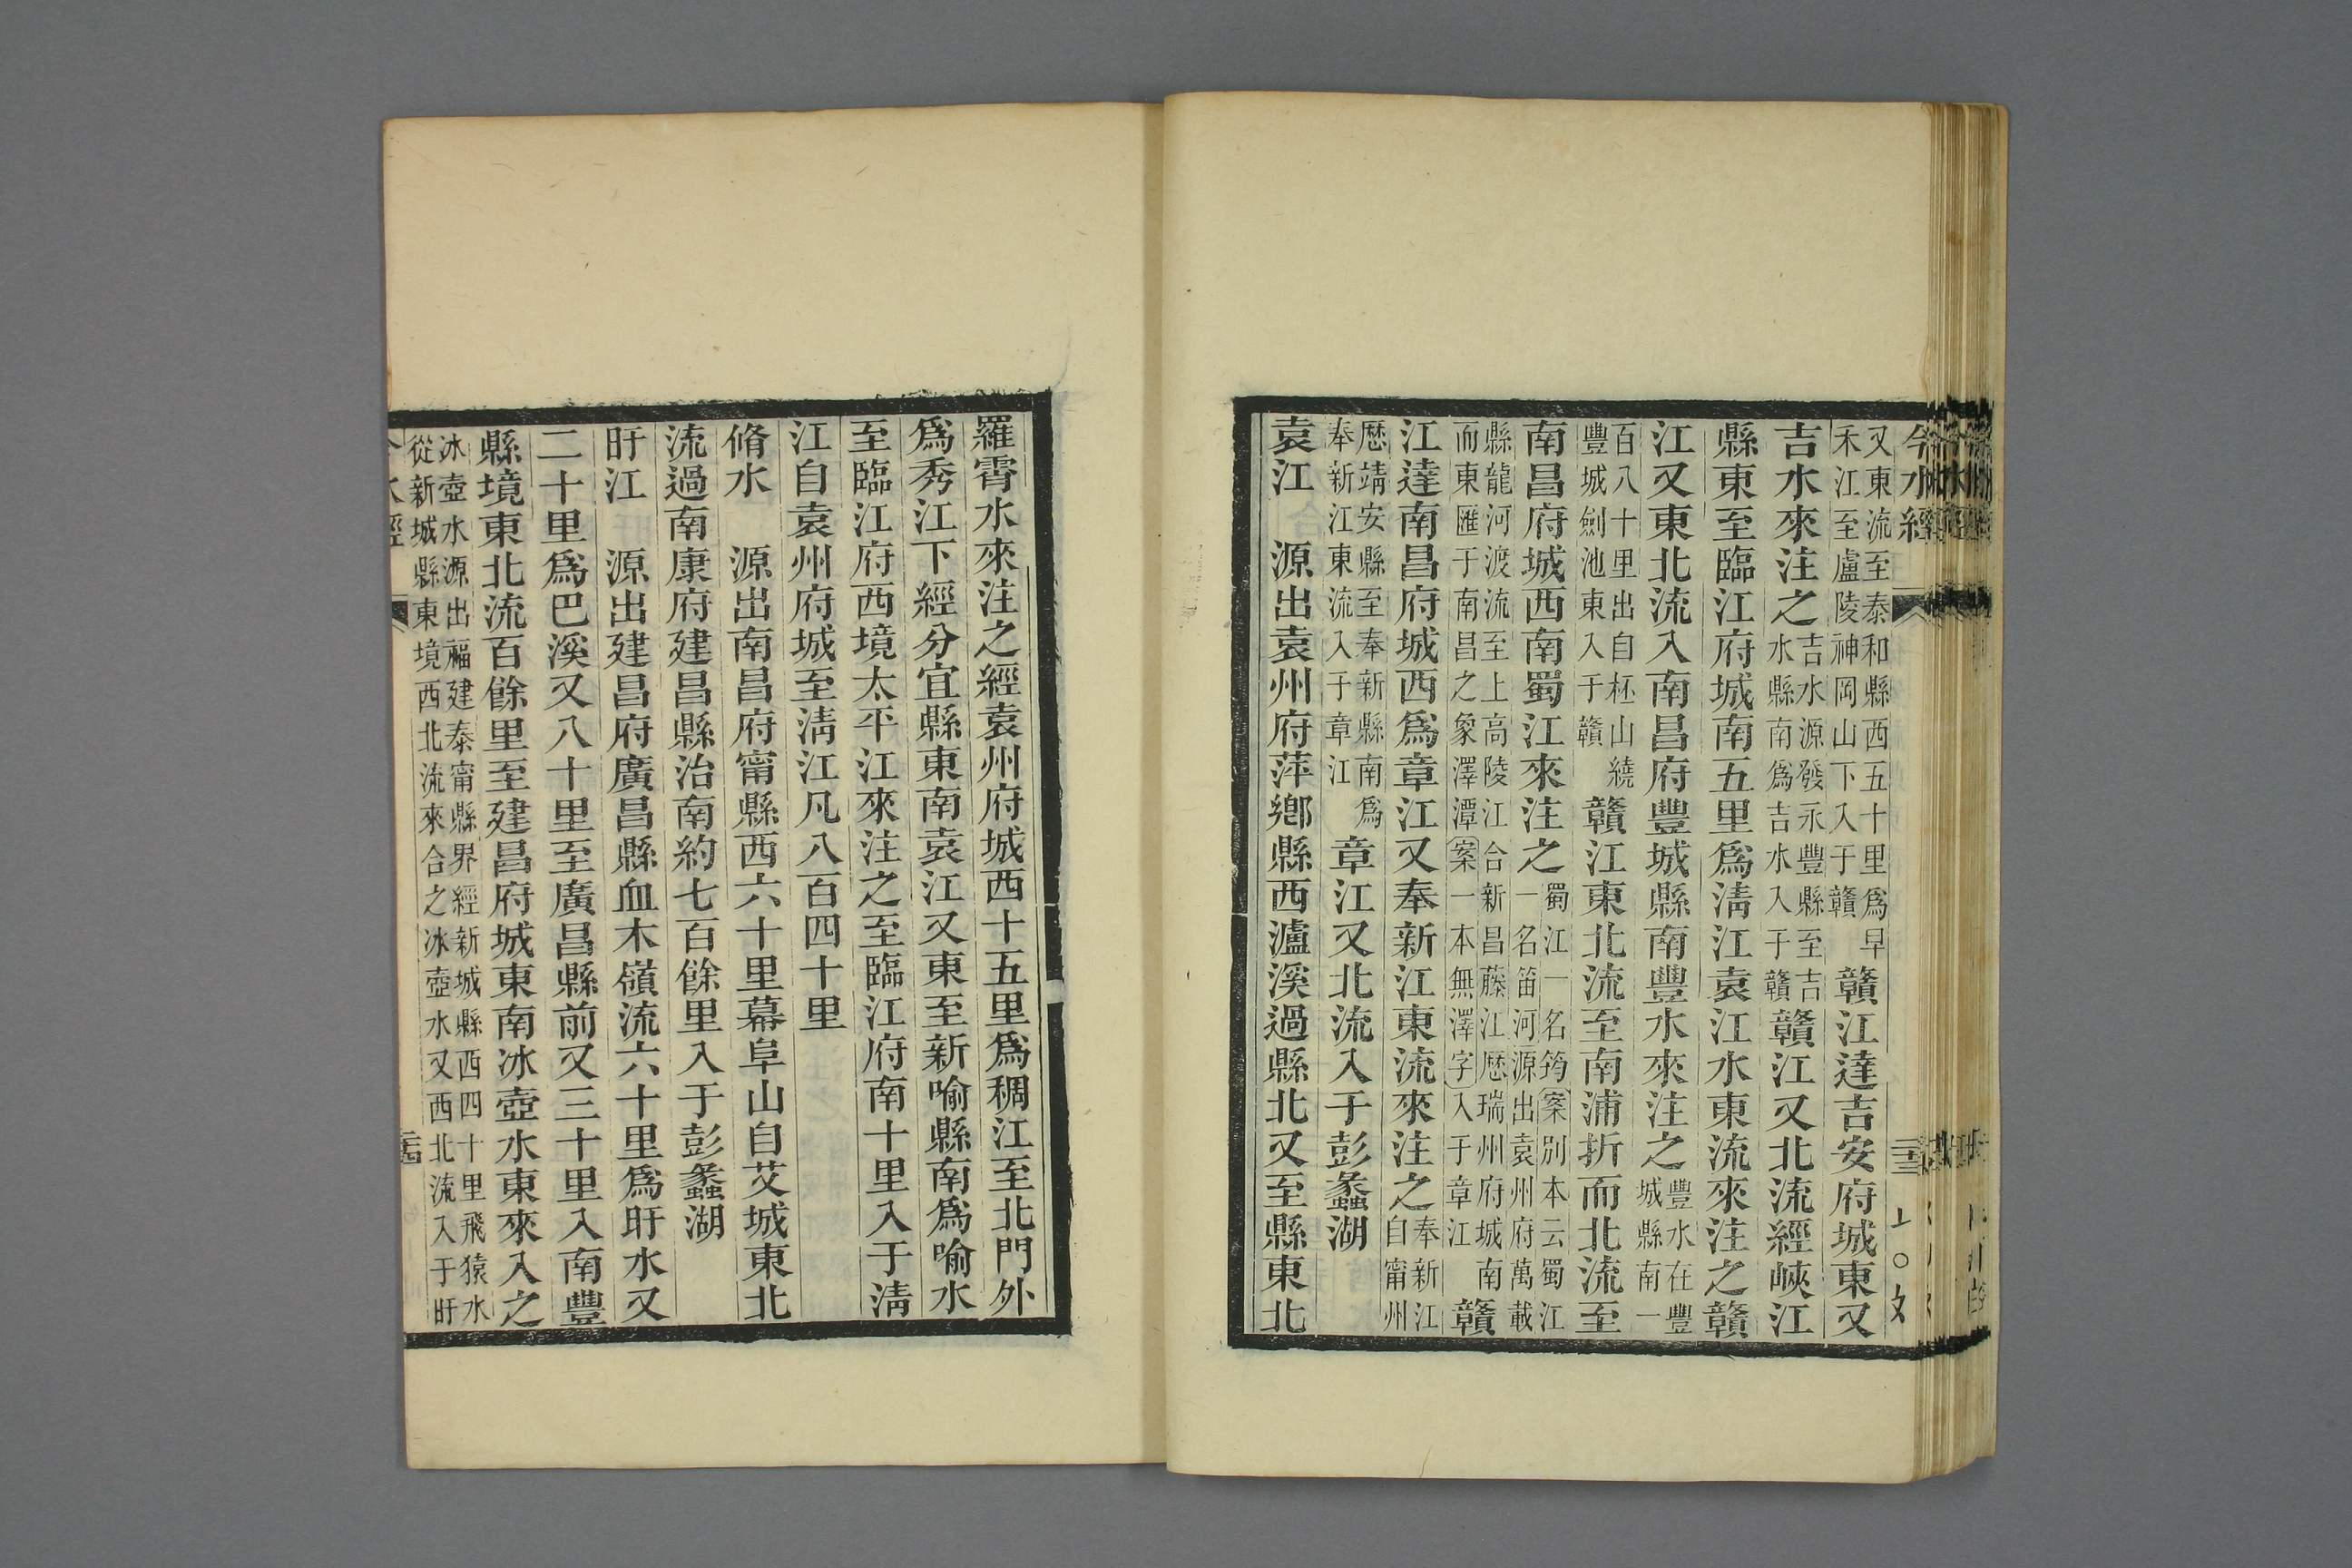 今水經
又東流至泰和縣西五十里爲早
禾江至盧陵神岡山下入于贛
贛江達吉安府城東又
吉水來注之
吉水源發永豐縣至吉
水縣南爲吉水入于贛
贛江又北流經峽江
縣東至臨江府城南五里爲淸江袁江水東流來注之贛
江又東北流入南昌府豐城縣南豐水來注之
豐水在豐
城縣南一
百八十里出自柸山繞
豐城劍池東入于贛
贛江東北流至南浦折而北流至
南昌府城西南蜀江來注之
蜀江一名筠案別本云蜀江
一名笛河源出袁州府萬載
縣龍河渡流至上高陵江合新昌藤江厯瑞州府城南
而東匯于南昌之象澤潭案一本無澤字入于章江
贛
江達南昌府城西爲章江又奉新江東流來注之
奉新江
自甯州
厯靖安縣至奉新縣南爲
奉新江東流入于章江
章江又北流入于彭蠡湖
袁江　源出袁州府萍鄉縣西瀘溪過縣北又至縣東北
羅霄水來注之經袁州府城西十五里爲稠江至北門外
爲秀江下經分宜縣東南袁江又東至新喻縣南爲喻水
至臨江府西境太平江來注之至臨江府南十里入于淸
江自袁州府城至淸江凡八百四十里
脩水　源出南昌府甯縣西六十里幕阜山自艾城東北
流過南康府建昌縣治南約七百餘里入于彭蠡湖
旴江　源出建昌府廣昌縣血木嶺流六十里爲旴水又
二十里爲巴溪又八十里至廣昌縣前又三十里入南豐
縣境東北流百餘里至建昌府城東南冰壺水東來入之
冰壺水源出福建泰甯縣界經新城縣西四十里飛猿水
從新城縣東境西北流來合之冰壺水又西北流入于旴